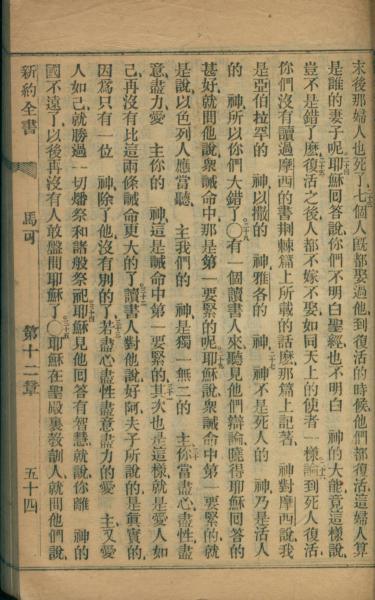 末後那婦人也死了七個人旣都娶過他到復活的時候他們都復活這婦人算
是誰的妻子呢耶穌回答說你們不明白聖經也不明白 神的大能竟這樣說
豈不是錯了麽復活之後人都不嫁不娶如同天上的使者一樣論到死人復活
你們沒有讀過摩西的書荆棘篇上所載的話麽那篇上記著 神對摩西說我
是亞伯拉罕的 神以撒的 神雅各的 神 神不是死人的 神乃是活人
的 神所以你們大錯了〇有一個讀書人來聽見他們辯論曉得耶穌回答的
甚好就問他說衆誡命中那是第一要緊的呢耶穌說衆誡命中第一要緊的就
是說以色列人應當聽 主我們的 神是獨一無二的 主你當盡心盡性盡
意盡力愛 主你的 神這是誡命中第一要緊的其次也是這樣就是愛人如
己再沒有比這兩條誡命更大的了讀書人對他說好阿夫子所說的是眞實的
因爲只有一位 神除了他沒有別的了若盡心盡性盡意盡力的愛 主又愛
人如己就勝過一切燔祭和諸般祭祀耶穌見他回答有智慧就說你離 神的
國不遠了以後再沒有人敢盤問耶穌了〇耶穌在聖殿裏敎訓人就問他們說
新約全書 馬可 第十二章 五十四